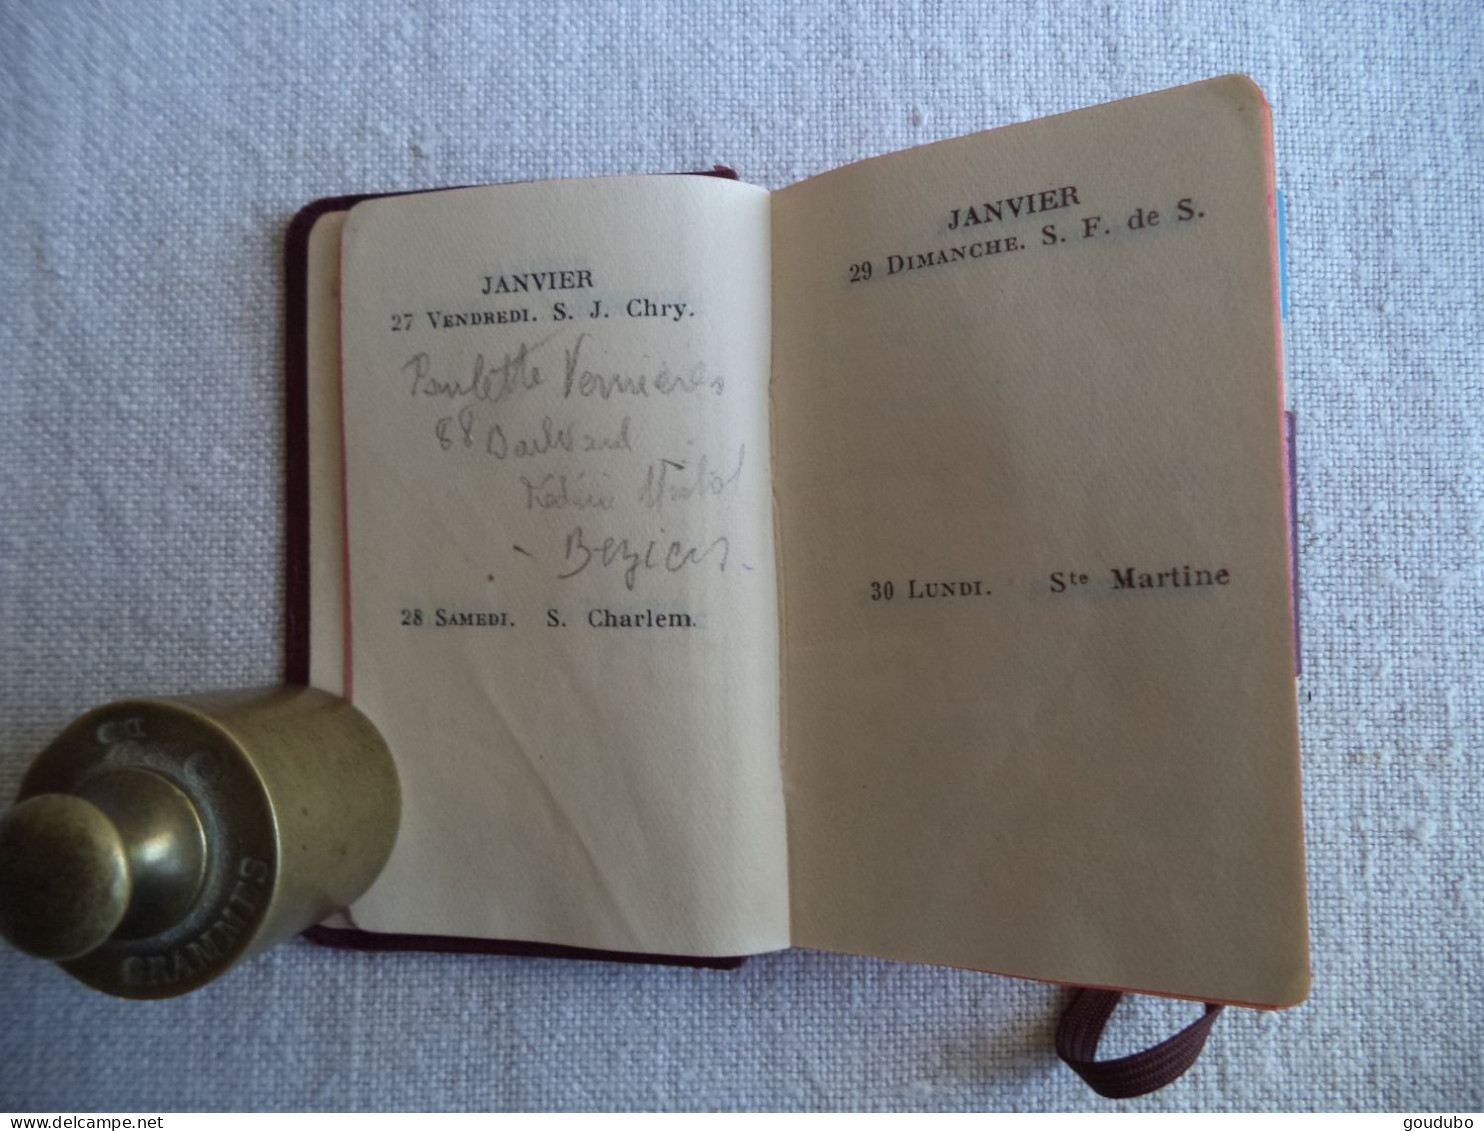 JANVIER
27 VENDREDI. S. J. Chry.
Paulette Vernières
88 Boulevard
Frédéric Mistral
- Beziers -
28 SAMEDI. S. Charlem.
JANVIER
29 DIMANCHE. S. F. de S.
30 LUNDI. Ste Martine
GRAMMES
www.delcampe.net
goudubo